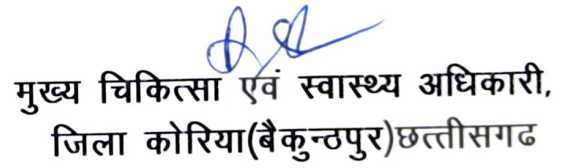 मुख्य चिकित्सा एवं स्वास्थ्य अधिकारी,
जिला कोरिया(बैकुन्ठपुर)छत्तीसगढ